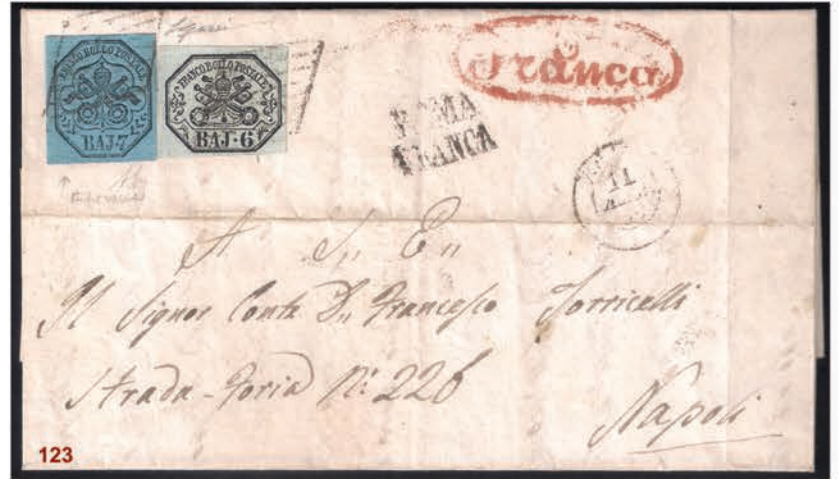 FRANCO BOLLO POSTALE
BAJ·7
FRANCO BOLLO POSTALE
BAJ·6
Franca
ROMA
FRANCA
11
A S., E.,
Il Signor Conte D., Francesco Torricelli
Strada-Foria N: 226
Napoli
123